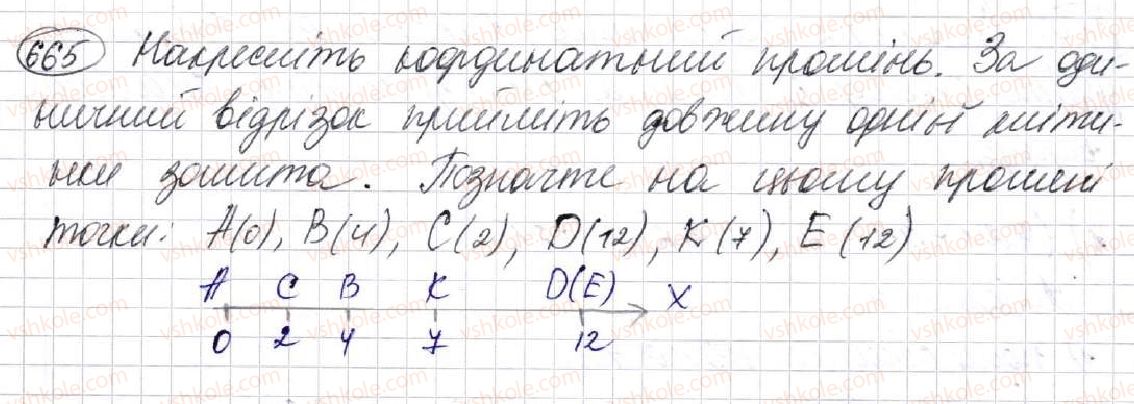 665 Накресліть координатний промінь. За оди-
ничний відрізок прийміть довжину однієї кліти-
нки зошита. Позначте на цьому промені
точки: A(0), B(4), C(2), D(12), K(7), E(12)
A C B K D(E) X
0 2 4 7 12